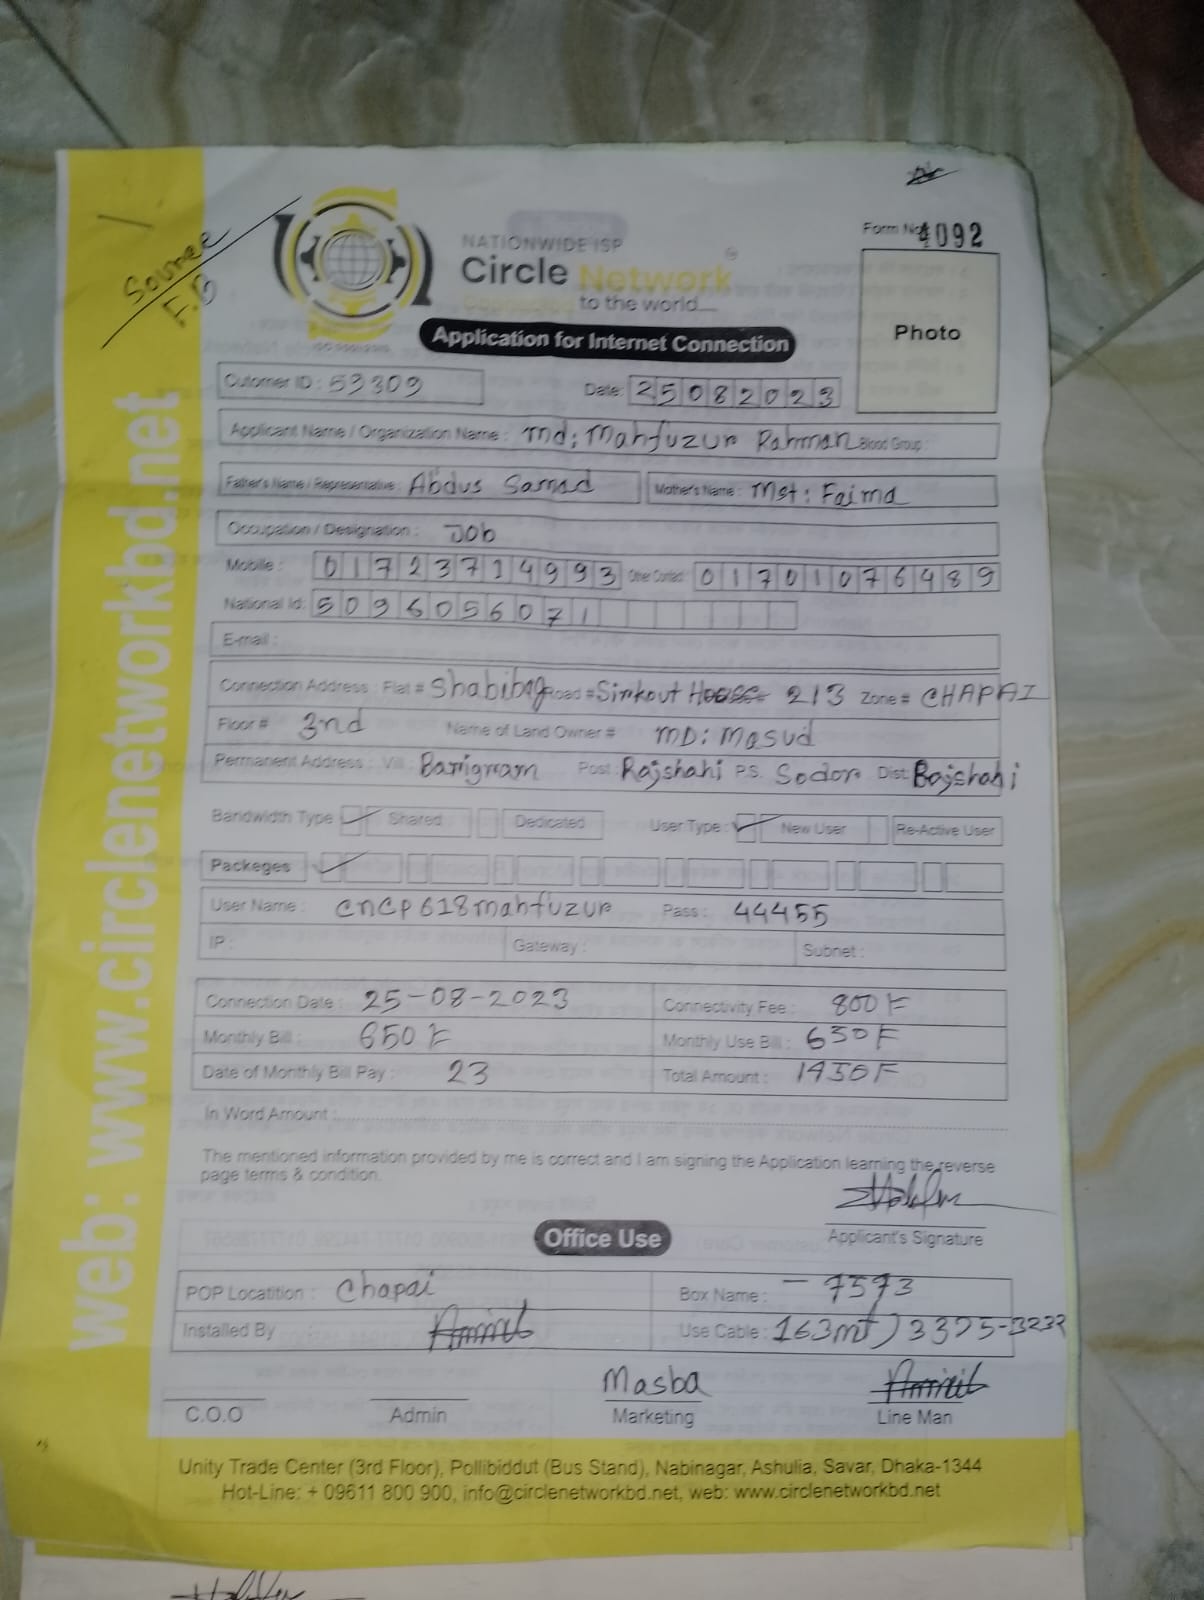 Source
F.B
NATIONWIDE ISP
Circle Network
to the world
Form No 4092
Photo
Application for Internet Connection
Cutomer ID : 53309 Date: 25082023
Applicant Name / Organization Name : Md: Mahfuzur Rahman Blood Group :
Father's Name / Representative : Abdus Samad Mother's Name : Mst: Faima
Occupation / Designation : Job
Mobile : 01723714993 Other Contact : 01701076489
National Id: 5096056071
E-mail :
Connection Address : Flat # Shabibag Road # Sirkout House 213 Zone # CHAPAI
Floor # 3nd Name of Land Owner # MD: Masud
Permanent Address : Vill : Barrigram Post Rajshahi P.S. Sodor Dist Rajshahi
Bandwidth Type Shared Dedicated User Type : New User Re-Active User
Packeges
User Name : cncp618mahfuzur Pass : 44455
IP : Gateway : Subnet :
Connection Date : 25-08-2023 Connectivity Fee : 800 F
Monthly Bill : 650 F Monthly Use Bill : 650 F
Date of Monthly Bill Pay : 23 Total Amount : 1450 F
In Word Amount :
The mentioned information provided by me is correct and I am signing the Application learning the reverse
page terms & condition.
Applicant's Signature
Office Use
POP Locatition : Chapai Box Name : - 7573
Installed By Use Cable : 163mt) 3375-3232
Masba
C.O.O Admin Marketing Line Man
Unity Trade Center (3rd Floor), Pollibiddut (Bus Stand), Nabinagar, Ashulia, Savar, Dhaka-1344
Hot-Line: + 09611 800 900, info@circlenetworkbd.net, web: www.circlenetworkbd.net
web: www.circlenetworkbd.net